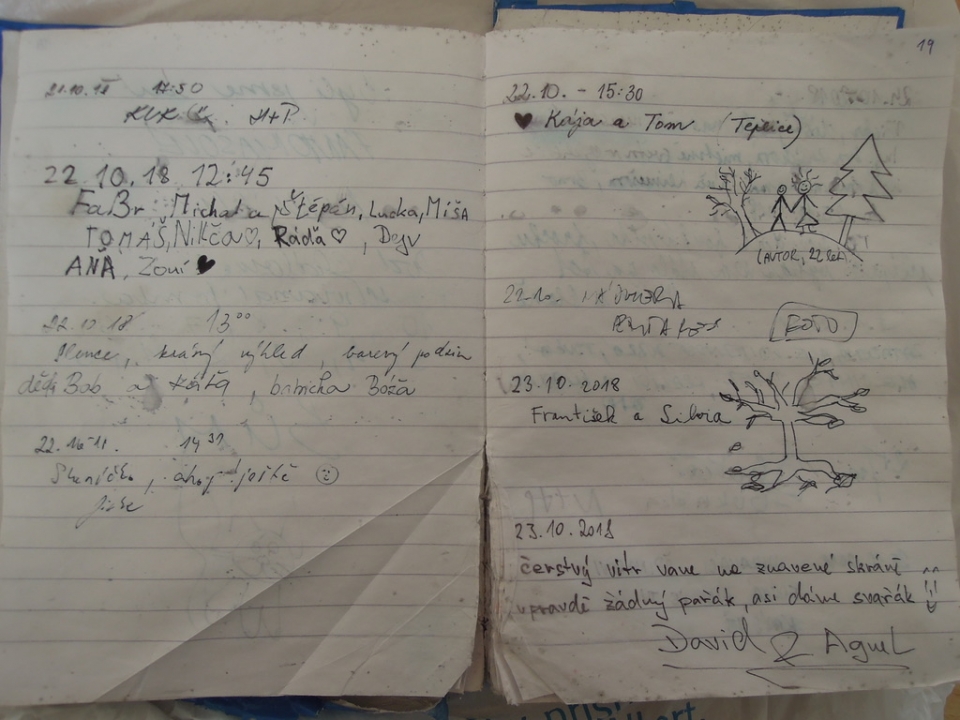 21.10.18 17:50
H+P.
22.10.18 12:45
FaBr, Michal a Štěpán, Lucka, Míša
TOMÁŠ, Nikča♡, Ráďa♡, Dejv
ANÄ, Zoni♥
22.10 18 13⁰⁰
Slunce, krásný výhled, barevný podzim
děti Bob a Káťa, babička Bóža
22. 14³¹
Sluníčko, ahoj ještě ☺
19
22.10. - 15:30
♥ Kája a Tom (Teplice)
(AUTOR, 22 let)
22.10.
FOTO
23.10.2018
František a Silvia
23.10.2018
čerstvý vítr vane na znavené skráně
opravdě žádný pařák, asi dáme svařák
David & Agnes